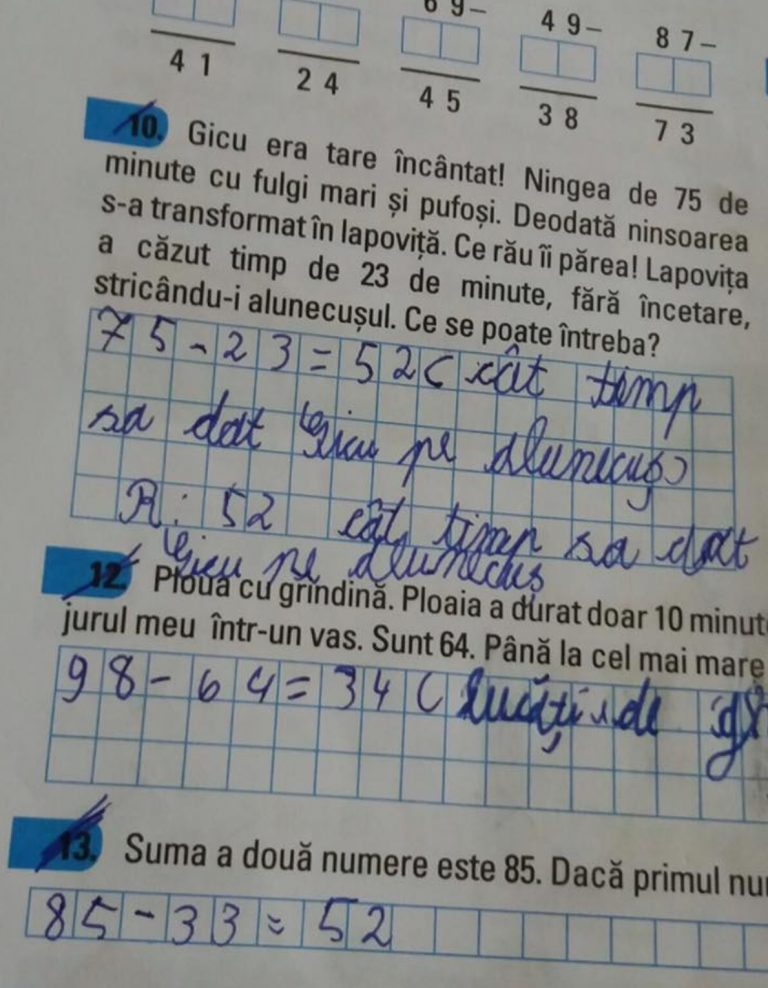 6 9 –
4 9 –
8 7 –
4 1
2 4
4 5
3 8
7 3
10. Gicu era tare încântat! Ningea de 75 de
minute cu fulgi mari și pufoși. Deodată ninsoarea
s-a transformat în lapoviță. Ce rău îi părea! Lapovița
a căzut timp de 23 de minute, fără încetare,
stricându-i alunecușul. Ce se poate întreba?
75-23=52( cât timp
sa dat Gicu pe alunecuș)
R: 52 cât timp sa dat
Gicu pe alunecuș
12. Plouă cu grindină. Ploaia a durat doar 10 minut
jurul meu într-un vas. Sunt 64. Până la cel mai mare
98-64=34( bucăți de
13. Suma a două numere este 85. Dacă primul nu
85-33=52